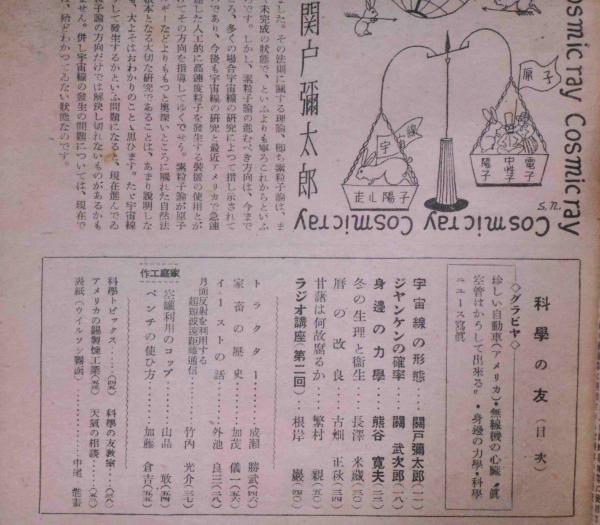 Cosmic ray Cosmic ray
Cosmic ray Cosmic ray
原子
宇宙線
走る陽子
陽子
中性子
電子
S.N.
關戸彌太郎
ました。その法則に關する理論、即ち素粒子論は、ま
だ未完成の狀態で、といふよりも寧ろこれからといふ
所です。しかし、素粒子論の進むべき方向は、今まで
も、多くの場合宇宙線の研究によつて指し示されて
のであり、今後も宇宙線の研究と最近アメリカで急速
達した人工的に高速度粒子を發生する裝置の使用とが
てその方向を指導してゆくでせう。素粒子論が原子
根本となる大切な研究であることは、あまり說明しな
も、大よそはおわかりのことゝ思ひます。たゞ宇宙線
うして發生するかといふ問題になると、現在進んでゐ
子論の方向だけでは解決し切れないものがあるかも
ません。併し宇宙線の發生の問題については、現在で
は、殆どわかつてゐない狀態なのです。
科學の友（目次）
◇グラビヤ◇
珍しい自動車(アメリカ)・無線機の心臟〝眞
空管はかうして出來る〟・身邊の力學・科學
ニュース寫眞
宇宙線の形態……關戶彌太郎(一一)
ジヤンケンの確率……關 武次郎(一八)
身邊の力學……熊谷 寬夫(二三)
冬の生理と衞生……長澤 米藏(三〇)
曆の改良……古畑 正秋(三四)
甘藷は何故腐るか……繁村 親(五〇)
ラジオ講座(第二回)……根岸 巖(四〇)
トラクター……成瀬 勝武(四六)
家畜の歷史……加茂 儀一(五六)
イーストの話……外池 良三(二八)
月面反射を利用する
超短波遠距離通信……竹内 光介(三七)
家庭工作
空罐利用のコップ……山品 敢(五四)
ペンチの使ひ方……加藤 倉吉(五五)
科學トピックス……科學の友教室……
アメリカの錫製煉工業……天氣の相談……
表紙(ウイルソン霧函)……中尾